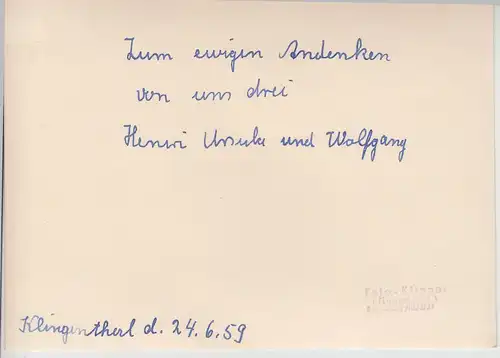 Zum ewigen Andenken
von uns drei
Henri Ursula und Wolfgang
Klingenthal d. 24.6.59